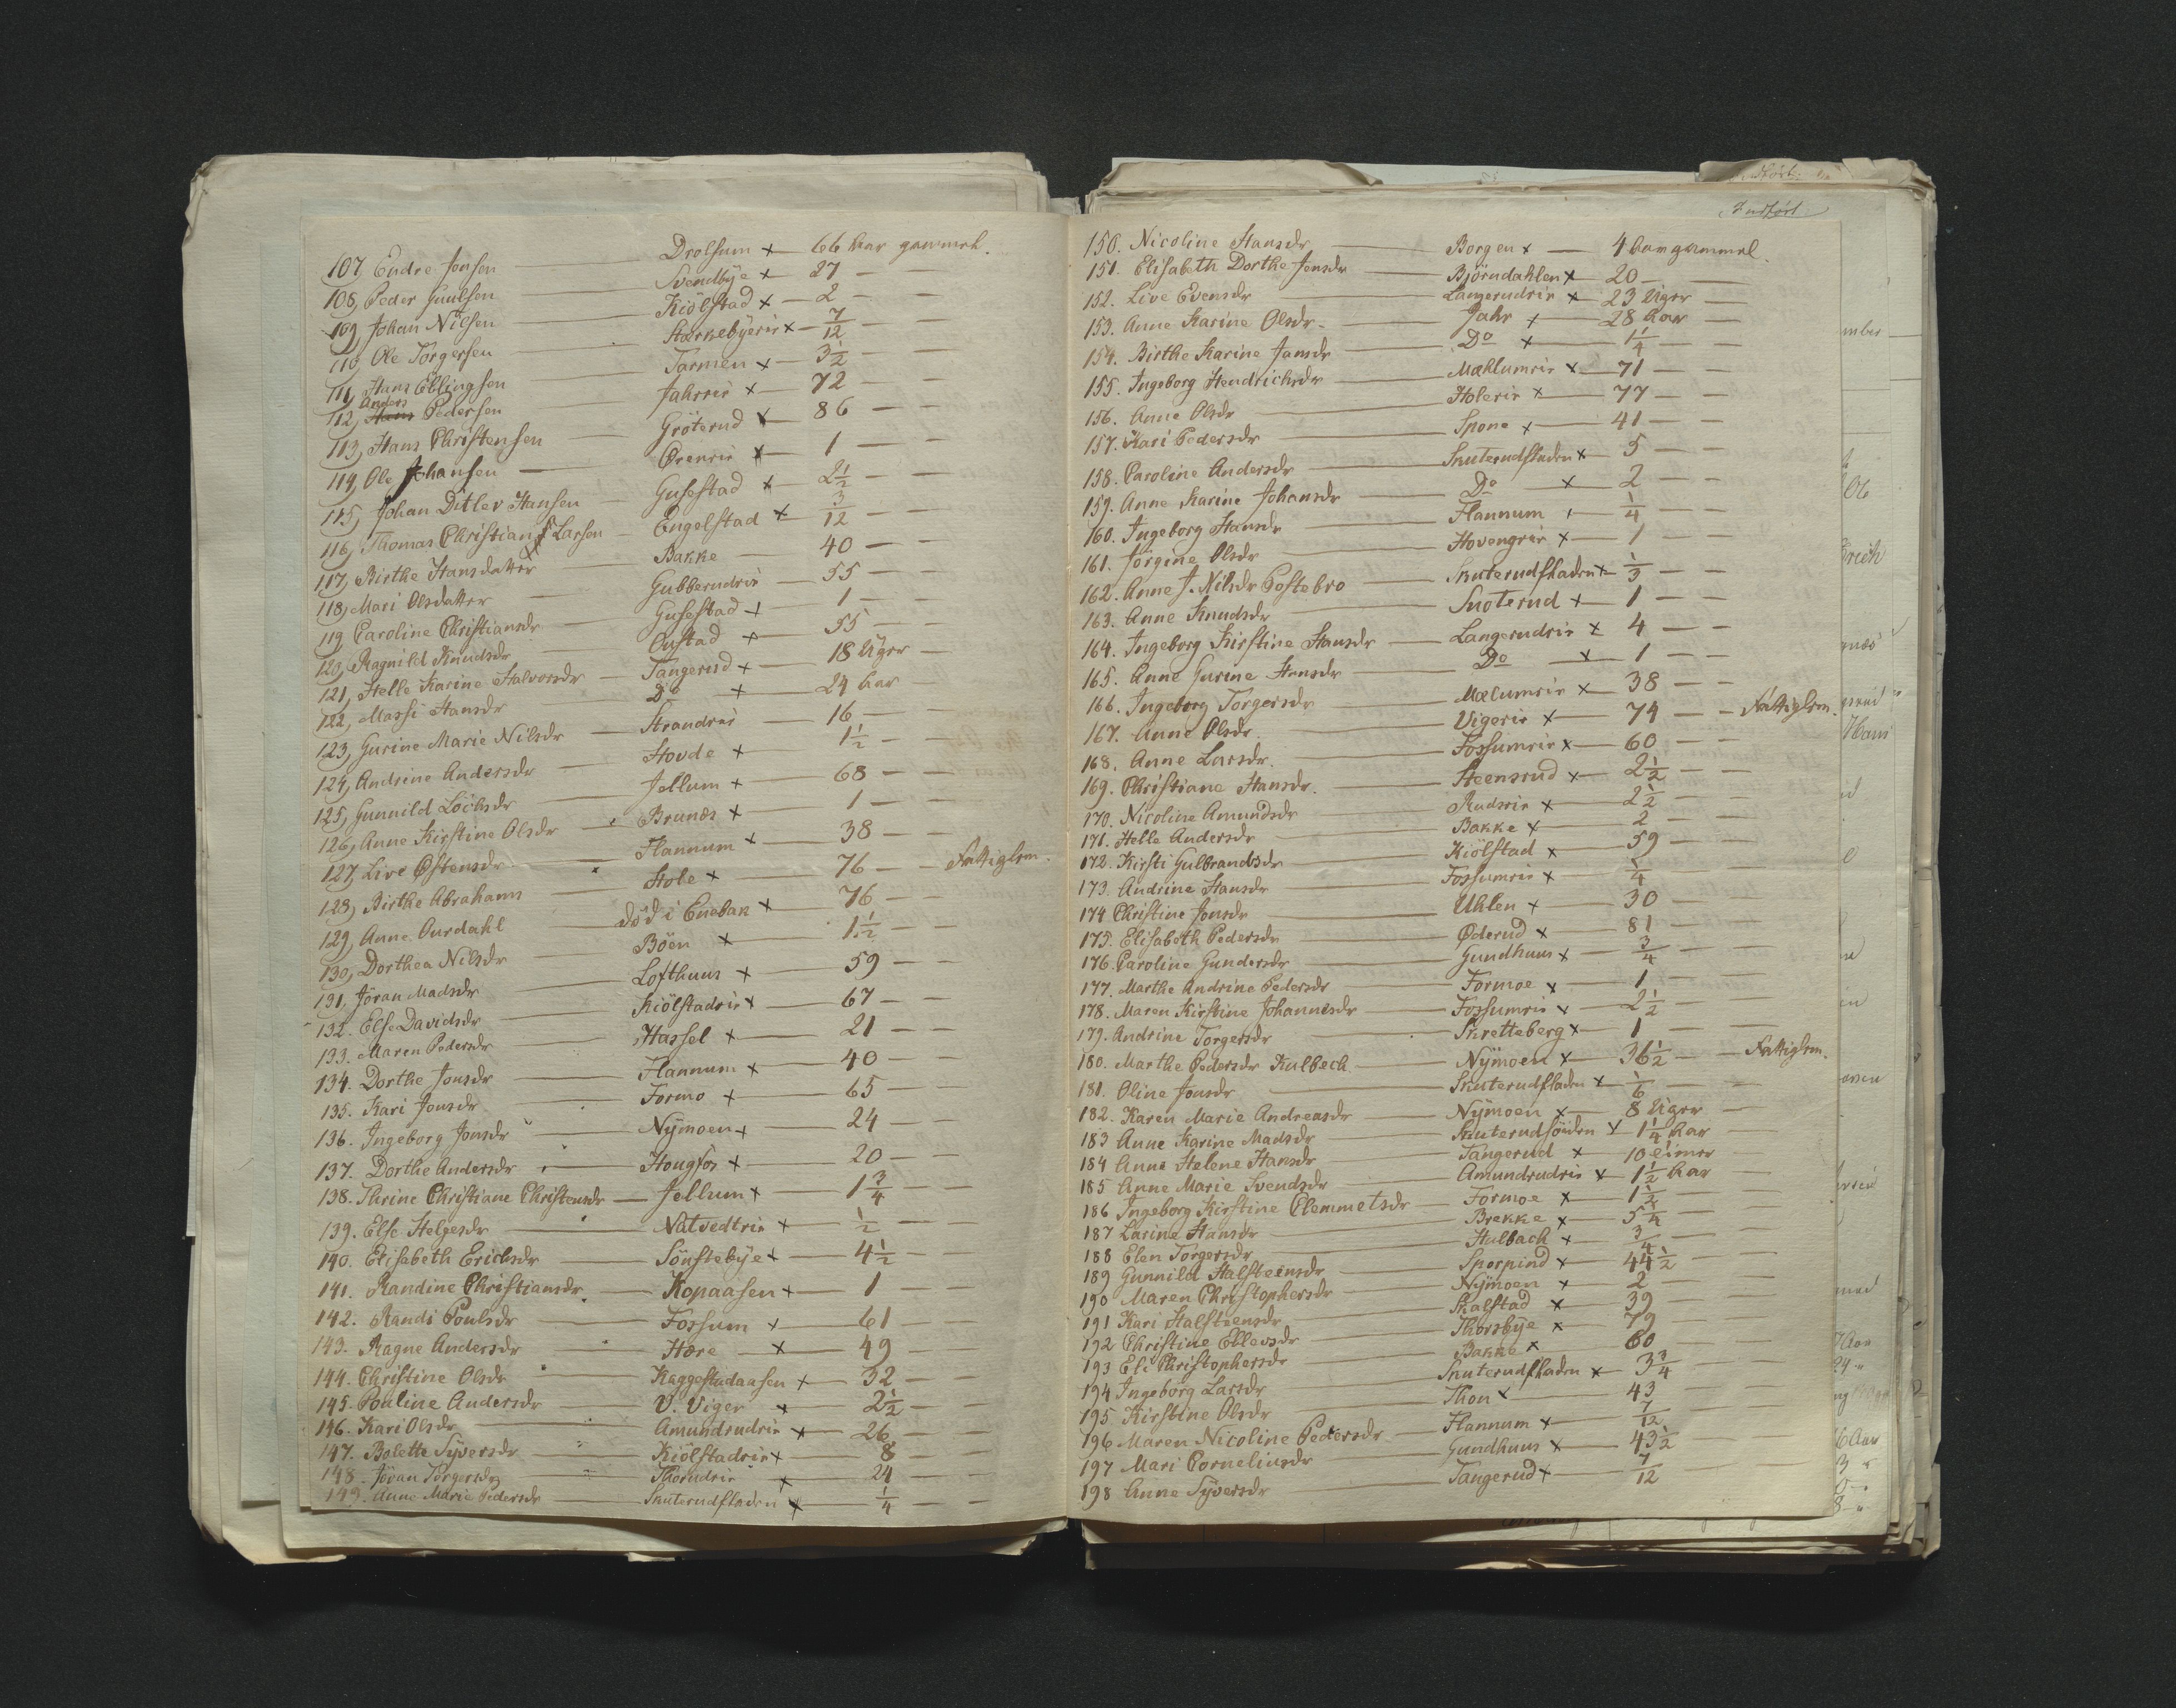 107, Endre Jonsen — Drolsum × — 66 Aar gammel.
108, Peder Guulsen — Svendbÿe × — 27 —
109, Johan Nilsen — Kiölstad × — 2 — —
110, Ole Torgersen — Starkebyeeie × — 7/12 — —
111, Hans Ellingsen — Tarmen × — 3 1/2 — —
112, Anders Pedersen — Jahreie × — 72 — —
113, Hans Christensen — Gröterud × — 86 —
114, Ole Johansen — Øreneie × — 1 — —
115, Johan Ditlev Hansen — Gusestad × — 2 1/2 — —
116, Thomas Christian Larsen — Engelstad × — 3/12 — —
117, Birthe Hansdatter — Bakke — 40 — —
118, Mari Olsdatter — Gubberudeie — 55 — —
119 Caroline Christiansdr — Gusestad × — 1 — —
120, Ragnild Knudsdr — Onstad × — 55 — —
121, Helle Karine Halvorsdr — Tangerud × — 18 Uger —
122, Massi Hansdr — Do × — 24 Aar
123, Gurine Marie Nilsdr — Strandeie — 16 — —
124, Andrine Andersdr — Hovde × — 1 1/2 — —
125, Gunnild Löchsdr — Jellum × — 68 — —
126, Anne Kirstine Olsdr — Brunæs × — 1 — —
127, Live Østensdr — Flannum × — 38 — —
128, Birthe Abrahams — Hole × — 76 — — Fattiglem.
129, Anne Aurdahl — död i Enebak × — 76 — —
130, Dorthea Nilsdr — Böen × — 1 1/2 — —
131. Jöran Madsdr — Lofthuus × — 59 — —
132. Else Davidsdr — Kiölstadeie × — 67 — —
133. Maren Pedersdr — Hassel × — 21 — —
134. Dorthe Jonsdr — Flannum × — 40 — —
135. Kari Jonsdr — Formo × — 65 — —
136. Ingeborg Jonsdr — Nÿmoen × — 24 — —
137. Dorthe Andersdr — Hougfos × — 20 — —
138. Thrine Christiane Christensdr — Jellum × — 1 3/4 — —
139. Else Helgesdr — Natvedteie × — 1/2 — —
140. Elisabeth Erichsdr — Sönstebÿe × — 4 1/2 — —
141. Randine Christiansdr. — Kopaasen × — 1 — —
142. Randi Poulsdr — Fossum × — 61 — —
143. Ragne Andersdr — Hære × — 49 — —
144. Christine Olsdr — Kaggestadaasen × — 32 — —
145. Pouline Andersdr — V. Viger × — 2 1/2 — —
146. Kari Olsdr — Amundrudeie × — 26 — —
147. Bolette Syversdr — Kiölstadeie × — 8 — —
148. Jöran Torgersdr — Thorudeie × — 24 — —
149. Anne Marie Pedersdr — Snuterudfladen × — 1/4 — —
Indført
150. Nicoline Hansdr — Borgen × — 4 Aar gammel.
151. Elisabeth Dorthe Jensdr — Björndahlen × — 20 —
152. Live Evensdr — Langerudeie × — 23 Uger —
153. Anne Karine Olsdr — Jahr × — 28 Aar —
154. Birthe Karine Jansdr — Do × — 1 1/4 — —
155. Ingeborg Hendrichsdr — Mæhlumeie × — 71 — —
156. Anne Olsdr — Holeeie × — 77 — —
157. Kari Pedersdr — Spone × — 41 — —
158. Caroline Andersdr — Snuterudfladen × — 5 — —
159. Anne Karine Johansdr — Do × — 2 — —
160. Ingeborg Hansdr — Flannum — 1/4 — —
161. Jörgine Olsdr — Hovengeie × — 1 — —
162. Anne J. Nilsdr Postebro — Snuterudfladen × — 1/3 — —
163. Anne Knudsdr — Snoterud × — 1 — —
164. Ingeborg Kirstine Hansdr — Langerudeie × — 4 — —
165. Anne Gurine Hansdr — Do × — 1 — —
166. Ingeborg Torgersdr — Mælumeie × — 38 — —
167. Anne Olsdr. — Vigereie × — 74 — — Fattiglem.
168. Anne Larsdr. — Fossumeie × — 60 — —
169. Christiane Hansdr. — Steensrud × — 2 1/2 — —
170. Nicoline Amundsdr — Rudseie × — 2 1/2 — —
171. Helle Andersdr — Bakke × — 2 — —
172. Kirsti Gulbrandsdr — Kiölstad × — 59 — —
173. Andrine Hansdr — Fossumeie × — 1/4 — —
174 Christine Jonsdr — Uhlen × — 30 — —
175. Elisabeth Pedersdr — Øderud × — 81 — —
176. Caroline Gundersdr — Gundhuus × — 3/4 — —
177. Marthe Andrine Pedersdr — Formoe × — 1 — —
178. Maren Kirstine Johannesdr — Fossumeie × — 2 1/2 — —
179. Andrine Torgersdr — Skretteberg × — 1 — —
180. Marthe Pedersdr Kulbech — Nÿmoen × — 36 1/2 — — Fattiglem.
181. Oline Jonsdr — Snuterudfladen × — 1/6 — —
182. Karen Marie Andreasdr — Nÿmoen × — 8 Uger —
183 Anne Karine Madsdr — × — 1 1/4 Aar —
184 Anne Helene Hansdr — Tangerud × — 10 Timer —
185 Anne Marie Svendsdr — Amundrudeie × — 1 1/2 Aar —
186 Ingeborg Kirstine Clemmetsdr — Formoe × — 1 1/2 — —
187 Larine Hansdr — Brekke × — 5 1/4 — —
188 Elen Torgersdr — Hulbach × — 3/4 — —
189 Gunnild Halsteensdr — Sporpind × — 44 1/2 — —
190 Maren Christophersdr — Nÿmoen × — 2 — —
191 Kari Halsteensdr — Skalstad × — 39 — —
192 Christine Ellevsdr — Thorsbÿe × — 79 — —
193 Eli Christophersdr — Bakke × — 60 — —
194 Ingeborg Larsdr — Snuterudfladen × — 3 3/4 — —
195 Kirstine Olsdr — Thon × — 43 — —
196 Maren Nicoline Pedersdr — Flannum × — 7/12 — —
197 Mari Corneliusdr — Gundhuus × — 43 1/2 — —
198 Anne Syversdr — Tangerud × — 7/12 — —